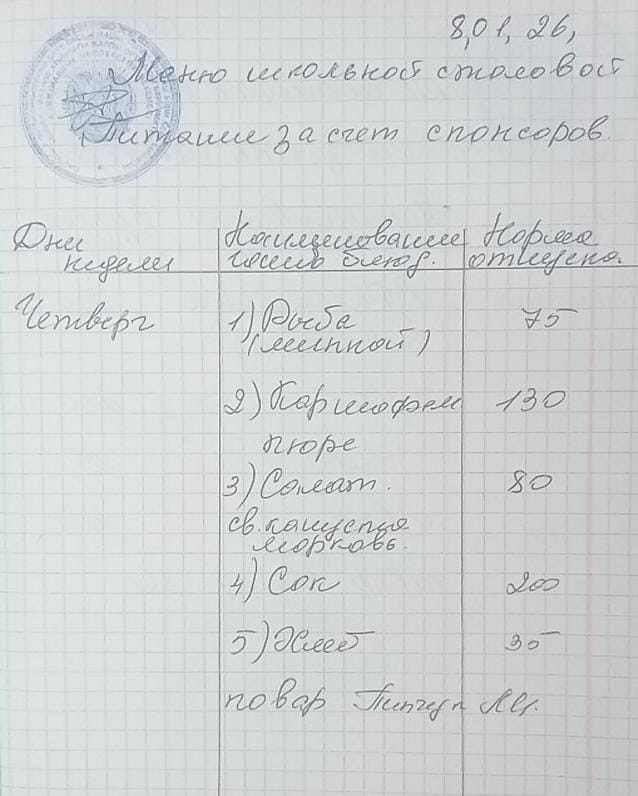 8,01, 26,
Меню школьной столовой
Питание за счет спонсоров.
Дни Наименование Норма
недели блюд. отпуска
Четверг 1) Рыба 75
(минтай)
2) Картофель 130
пюре
3) Салат. 80
св. капуста
морковь.
4) Сок 200
5) Хлеб 35
повар